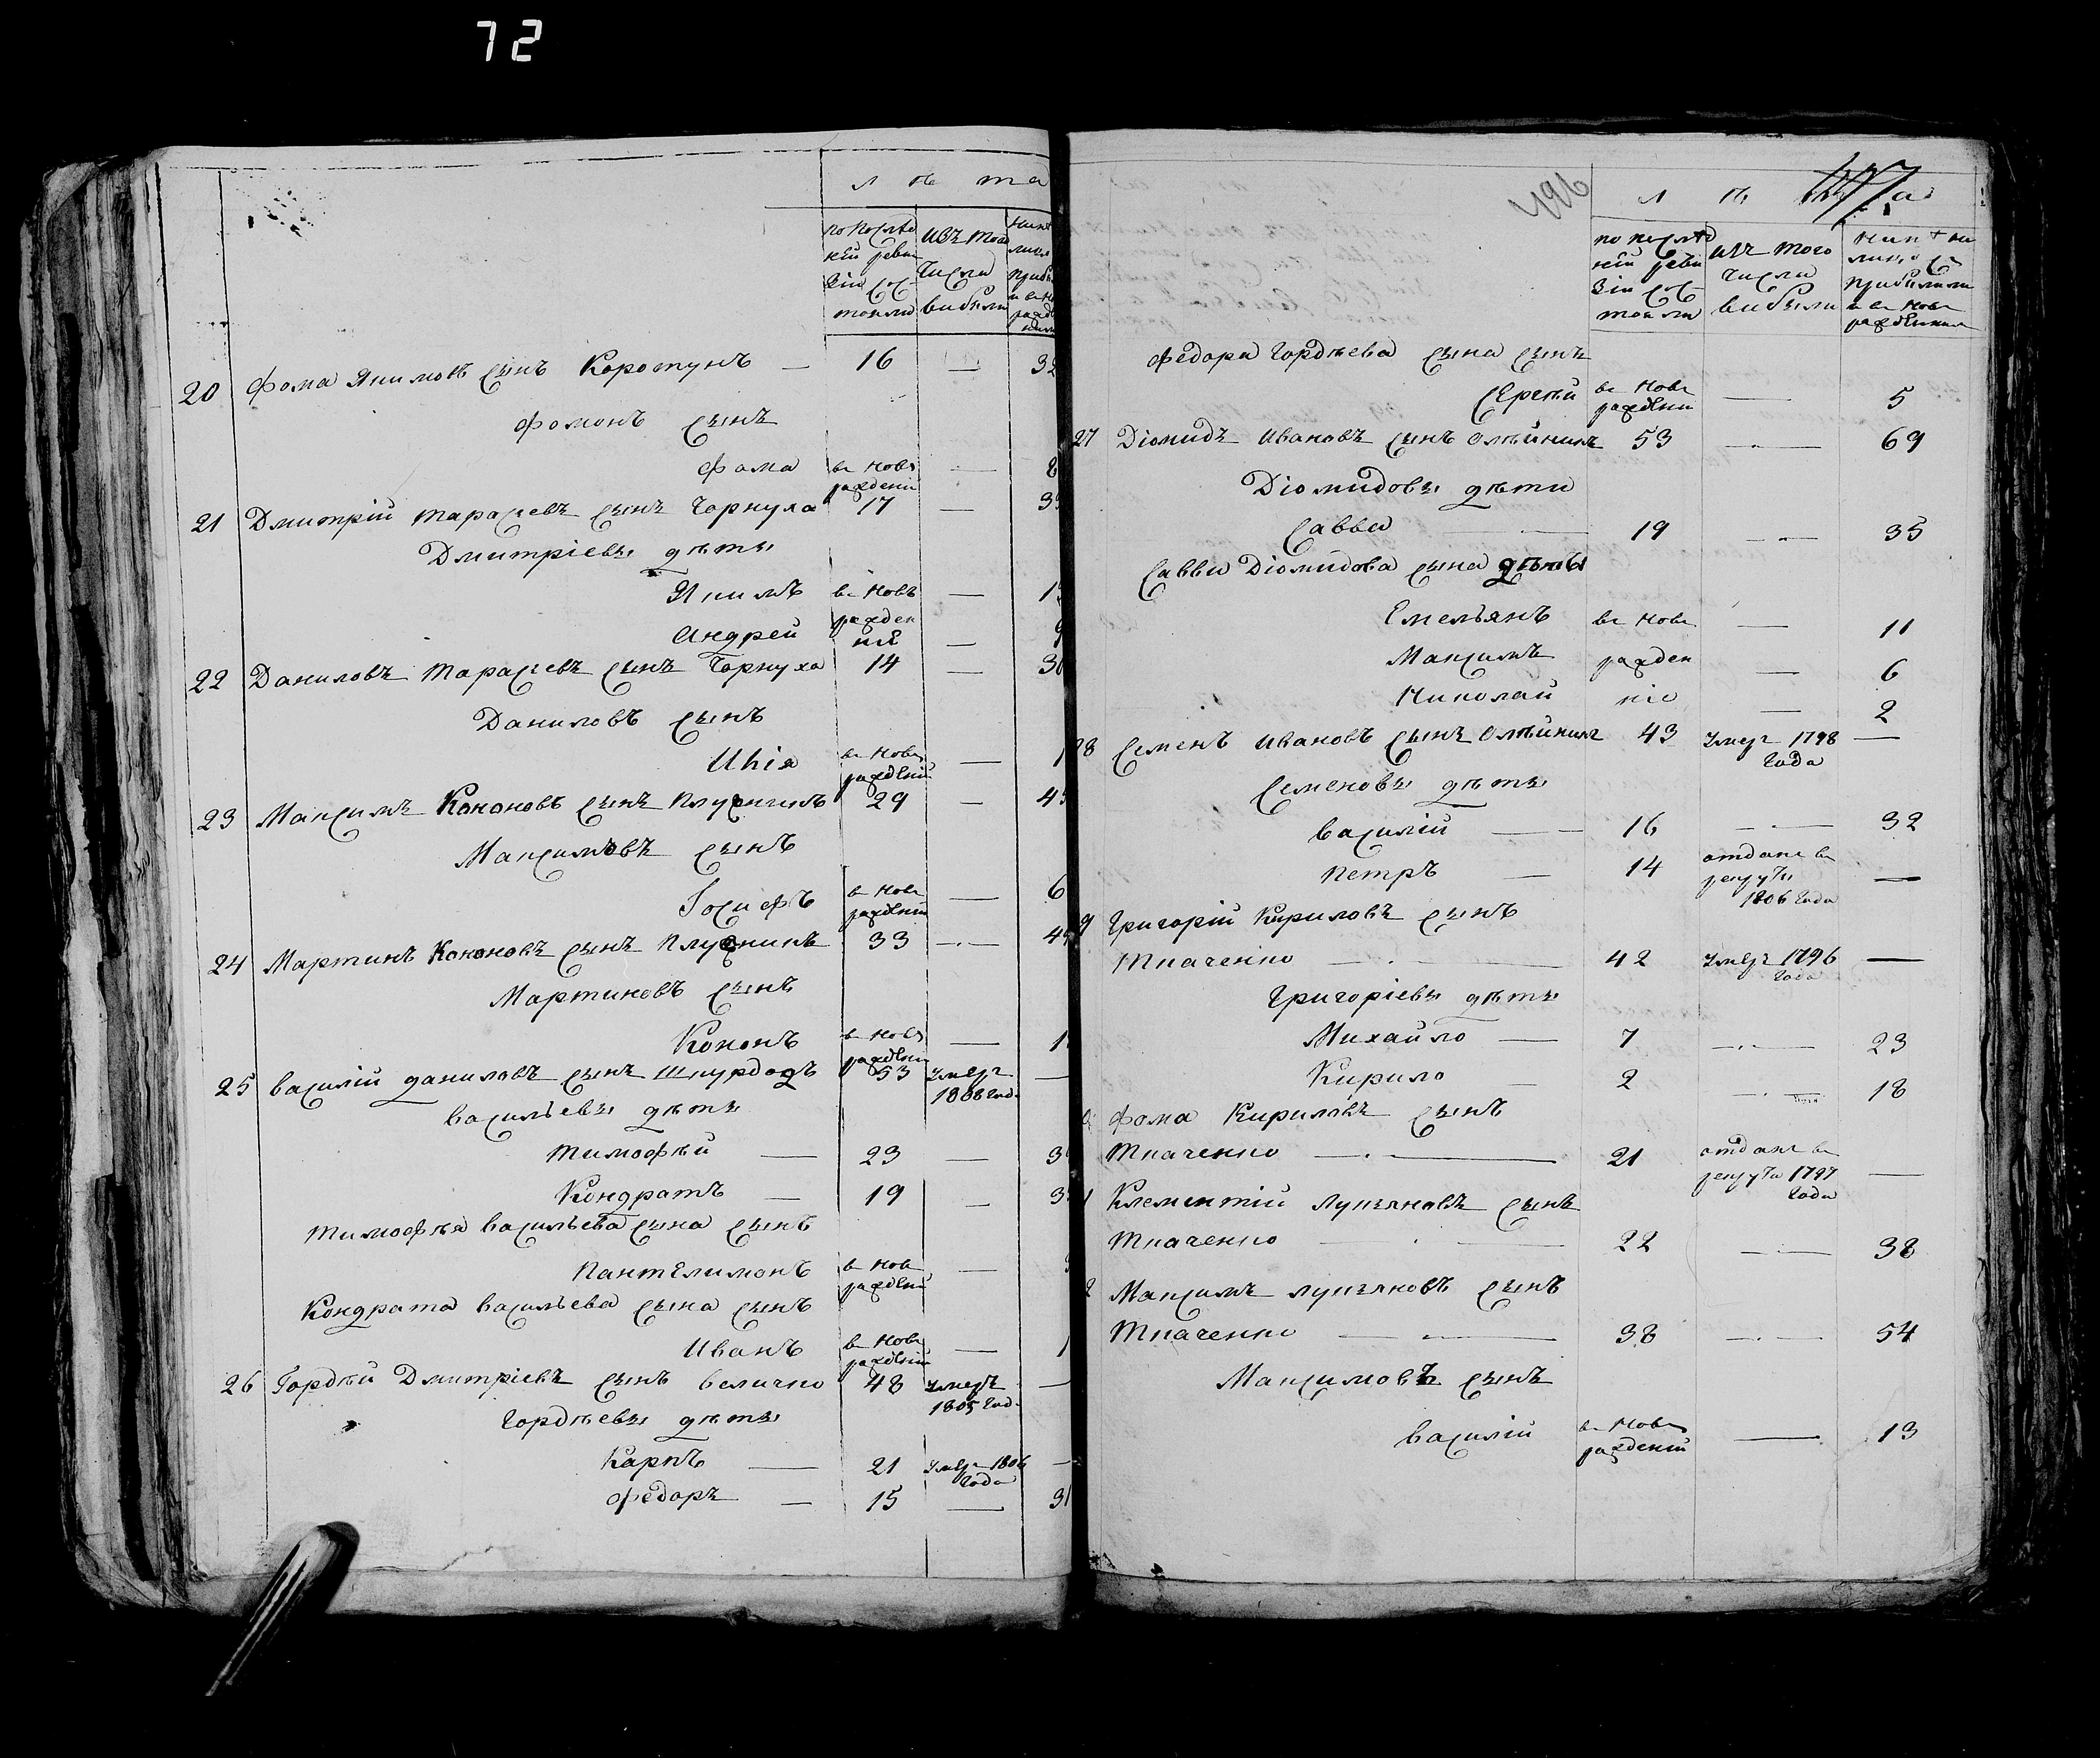 72
лѣта
по послѣд
ней реви
зіи сос
тояли
изъ того
числа
выбыли
20 Фома Якимовъ сынъ Коротунъ — 16 — 32
Фоминъ сынъ
Фома въ новь рожденъ — 8
21 Дмитрій Тарасіевъ сынъ Чорнуха 17 —
Дмитріевы дѣты
Якимъ въ новь —
Андрей рожден ніи —
22 Даниловъ Тарасіевъ сынъ Чорнуха 14 —
Даниловъ сынъ
Илія въ новь рожденій —
23 Максимъ Кононовъ сынъ 29 —
Максимовъ сынъ
Іосифъ въ новь рожденій — 6
24 Мартинъ Кононовъ сынъ 33 —
Мартиновъ сынъ
Кононъ въ новь рожденій —
25 Василій Даниловъ сынъ Шкурдодъ 53 умеръ 1808 года —
Васильевы дѣты
Тимофѣй — 23 —
Кондратъ — 19 —
Тимофѣя Васильева сына сынъ
Пантелимонъ въ новь рожденій —
Кондрата Васильева сына сынъ
Иванъ въ новь рожденій —
26 Гордѣй Дмитріевъ сынъ Величко 48 умеръ 1805 года —
Гордѣевы дѣты
Карпъ — 21 умеръ 1806 года —
Федоръ — 15 — 31
496
лѣта
по послѣд
ней реви
зіи сос
тояли
изъ того
числа
выбыли
Федора Гордѣева сына сынъ
Сергѣй въ новь рожденій — 5
27 Діомидъ Ивановъ сынъ Олѣйникъ 53 — 69
Діомидовы дѣти
Савва — 19 — 35
Саввы Діомидова сына дѣты
Емельянъ въ новь — 11
Максимъ рожден — 6
Николай ніе — 2
28 Семенъ Ивановъ сынъ Олѣйникъ 43 умеръ 1798 года —
Семеновы дѣты
Василій — 16 — 32
Петръ — 14 отданъ въ рекруты 1806 года —
9 Григорій Кириловъ сынъ
Ткаченко — 42 умеръ 1796 года —
Григоріевы дѣты
Михайло — 7 — 23
Кирило — 2 — 18
Фома Кириловъ сынъ
Ткаченко — 21 отданъ въ рекруты 1797 года —
1 Клементій Лукъяновъ сынъ
Ткаченко — 22 — 38
2 Максимъ Лукъяновъ сынъ
Ткаченко — 38 — 54
Максимовъ сынъ
Василій въ новь рожденій — 13